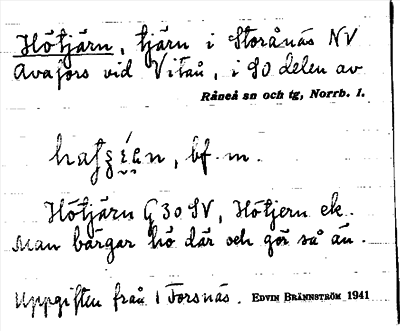 Hötjärn, tjärn i Storånäs NV
Avafors vid Vitån, i SO delen av
Råneå sn och tg, Norrb. l.
bf. m.
Hötjärn G 30 SV, Hötjern ek.
Man bärgar hö där och gör så än.
Uppgiften från 1 Forsnäs. EDVIN BRÄNNSTRÖM 1941